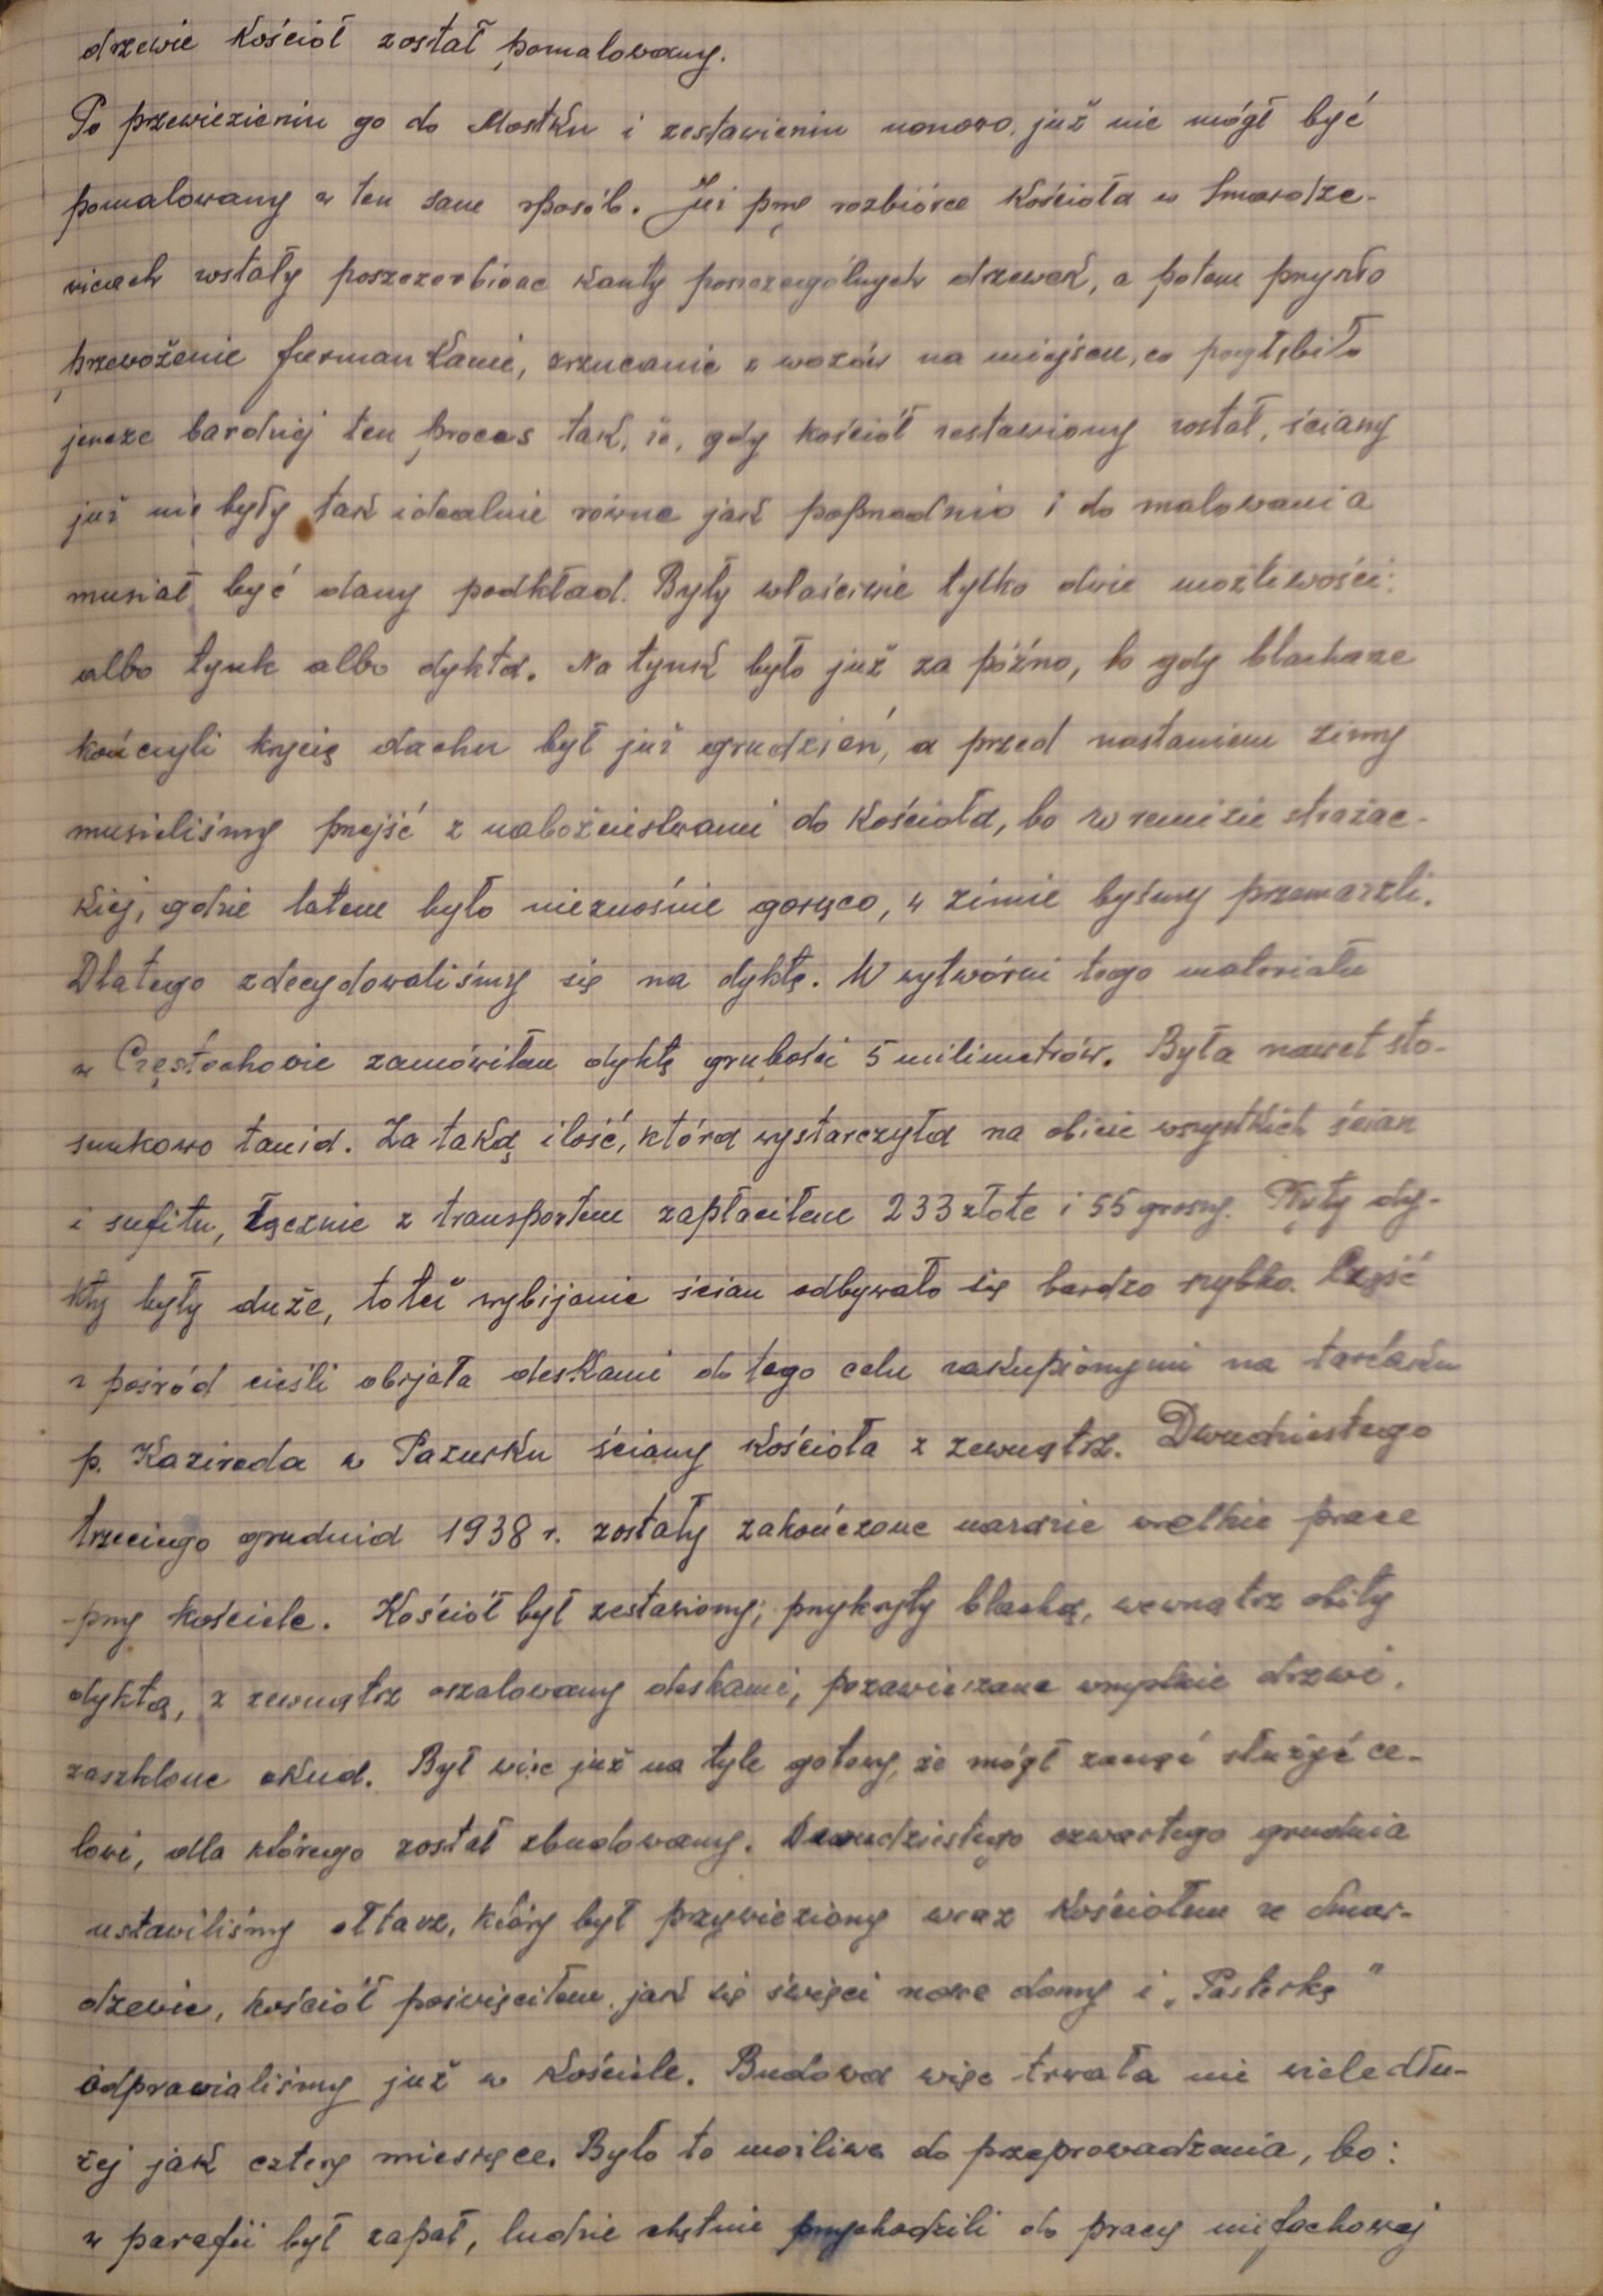 drzewie kościół został pomalowany.
Po przewiezieniu go do Mostku i zestawieniu nanowo, już nie mógł być
pomalowany w ten sam sposób. Już przy rozbiórce kościoła w Smardze-
wicach zostały poszczerbione kanty poszczególnych drzewek, a potem przyszło
przewożenie furmankami, zrzucanie z wozów na miejscu, co pogłębiło
jeszcze bardziej ten proces tak, że, gdy kościół zestawiony został, ściany
już nie były tak idealnie równe jak poprzednio i do malowania
musiał być dany podkład. Były właściwie tylko dwie możliwości:
albo tynk albo dykta. Na tynk było już za późno, bo gdy blacharze
kończyli krycie dachu był już grudzień, a przed nastaniem zimy
musieliśmy przejść z nabożeństwami do kościoła, bo w remizie strażac-
kiej, gdzie latem było nieznośnie gorąco, w zimie byśmy przemarzli.
Dlatego zdecydowaliśmy się na dyktę. W wytwórni tego materiału
w Częstochowie zamówiłem dyktę grubości 5 milimetrów. Była nawet sto-
sunkowo tania. Za taką ilość, która wystarczyła na obicie wszystkich ścian
i sufitu, łącznie z transportem zapłaciłem 233 złote i 55 groszy. Płyty dy-
kty były duże, toteż wybijanie ścian odbywało się bardzo szybko. Część
z pośród cieśli obijała deskami do tego celu zakupionymi na tartaku
p. Kaziroda w Pazurku ściany kościoła z zewnątrz. Dwudziestego
trzeciego grudnia 1938 r. zostały zakończone narazie wielkie prace
przy kościele. Kościół był zestawiony, przykryty blachą, wewnątrz obity
dyktą, z zewnątrz oszalowany deskami, pozawieszane wszystkie drzwi,
zaszklone okna. Był więc już na tyle gotowy, że mógł zacząć służyć ce-
lowi, dla którego został zbudowany. Dwudziestego czwartego grudnia
ustawiliśmy ołtarz, który był przywieziony wraz kościołem ze Smar-
dzewic, kościół poświęciłem, jak się święci nowe domy i „Pasterkę"
odprawialiśmy już w kościele. Budowa więc trwała nie wiele dłu-
żej jak cztery miesiące. Było to możliwe do przeprowadzenia, bo:
w parafii był zapał, ludzie chętnie przychodzili do pracy niefachowej